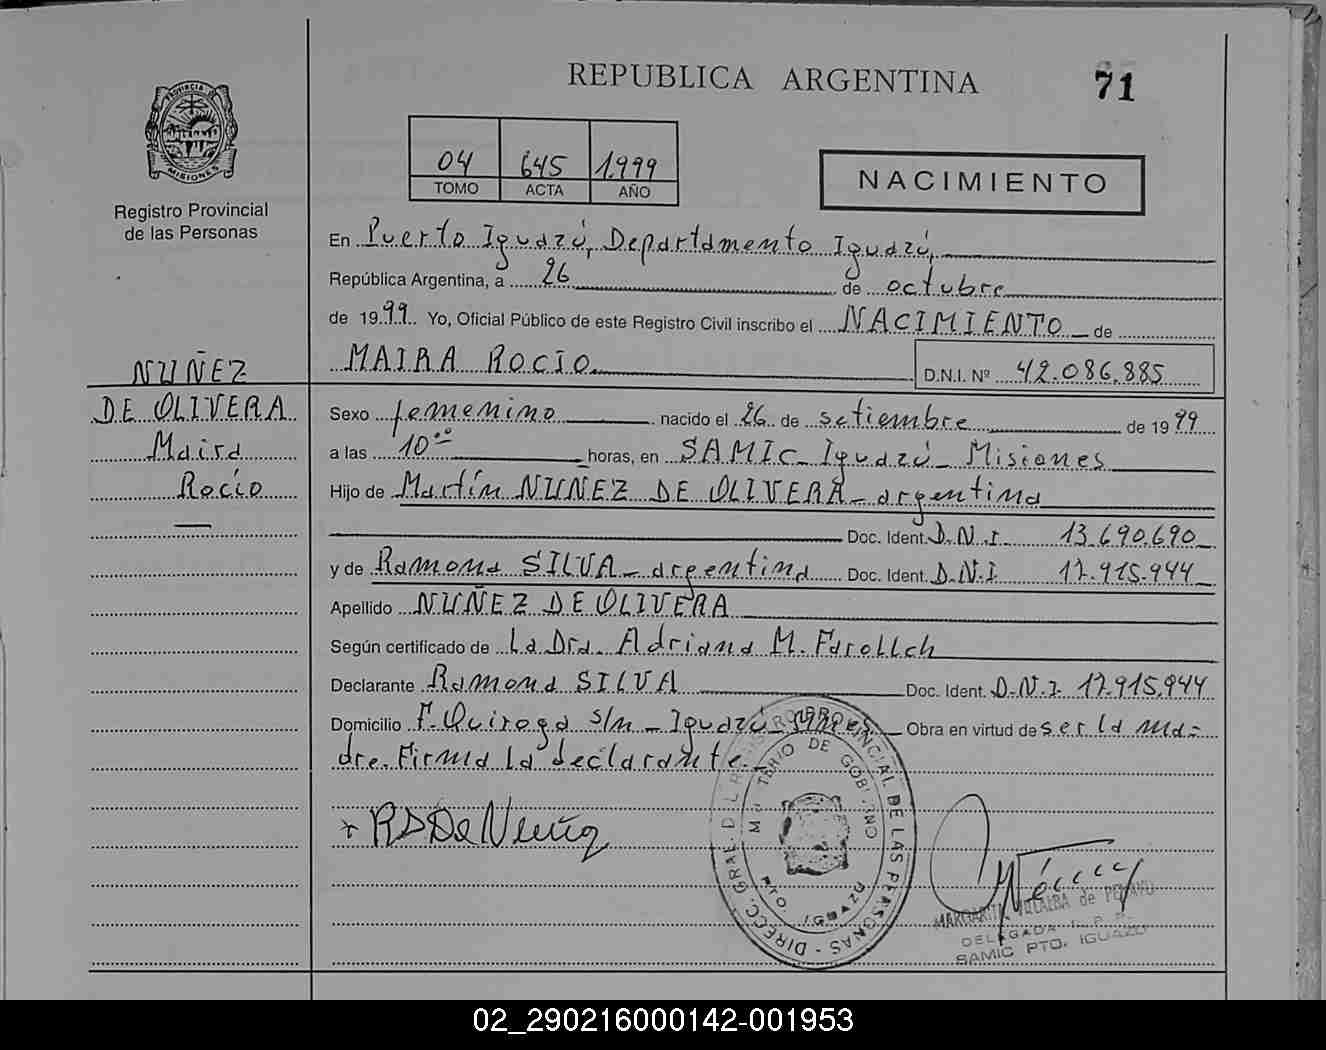 REPUBLICA ARGENTINA
71
PROVINCIA DE
MISIONES
Registro Provincial
de las Personas
04 645 1999
TOMO ACTA AÑO
NACIMIENTO
En Puerto Iguazú, Departamento Iguazú,
República Argentina, a 26 de octubre
de 1999. Yo, Oficial Público de este Registro Civil inscribo el NACIMIENTO de
MAIRA ROCÍO
D.N.I. Nº 42.086.885
NUÑEZ
DE OLIVERA
Maira
Rocío
Sexo femenino nacido el 26 de setiembre de 1999
a las 10 horas, en SAMIC Iguazú Misiones
Hijo de Martín NUÑEZ DE OLIVERA - argentina
Doc. Ident. D.N.I. 13.690.690
y de Ramona SILVA - argentina Doc. Ident. D.N.I. 17.915.944
Apellido NUÑEZ DE OLIVERA
Según certificado de La Dra. Adriana M.
Declarante Ramona SILVA Doc. Ident. D.N.I. 17.915.944
Domicilio F. Quiroga s/n - Iguazú Obra en virtud de ser la ma=
dre. Firma la declarante.
DIRECC. GRAL. DEL REGISTRO PROVINCIAL DE LAS PERSONAS
PTO IGUAZU
DELEGADA
SAMIC PTO. IGUAZU
02_290216000142-001953